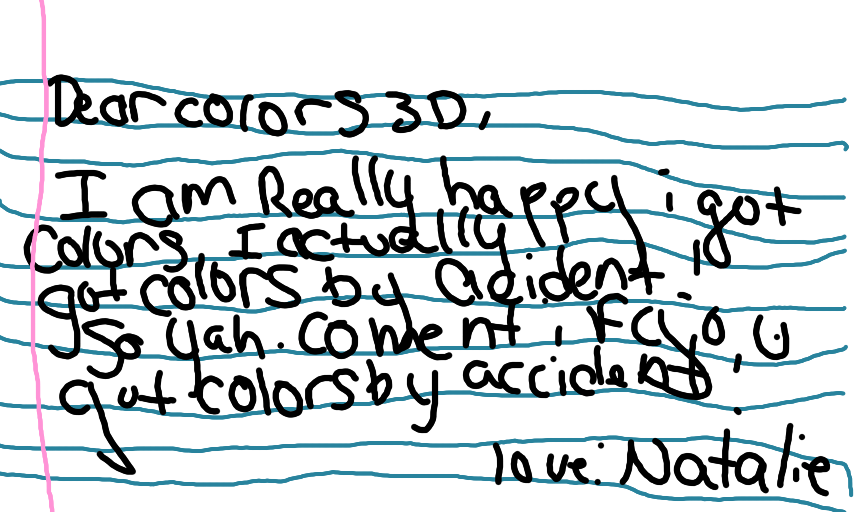 Dear colors 3D,
I am Really happy i got
Colors. I actually
got colors by acident.
So yah. Coment, if you
got colors by accident.
love: Natalie